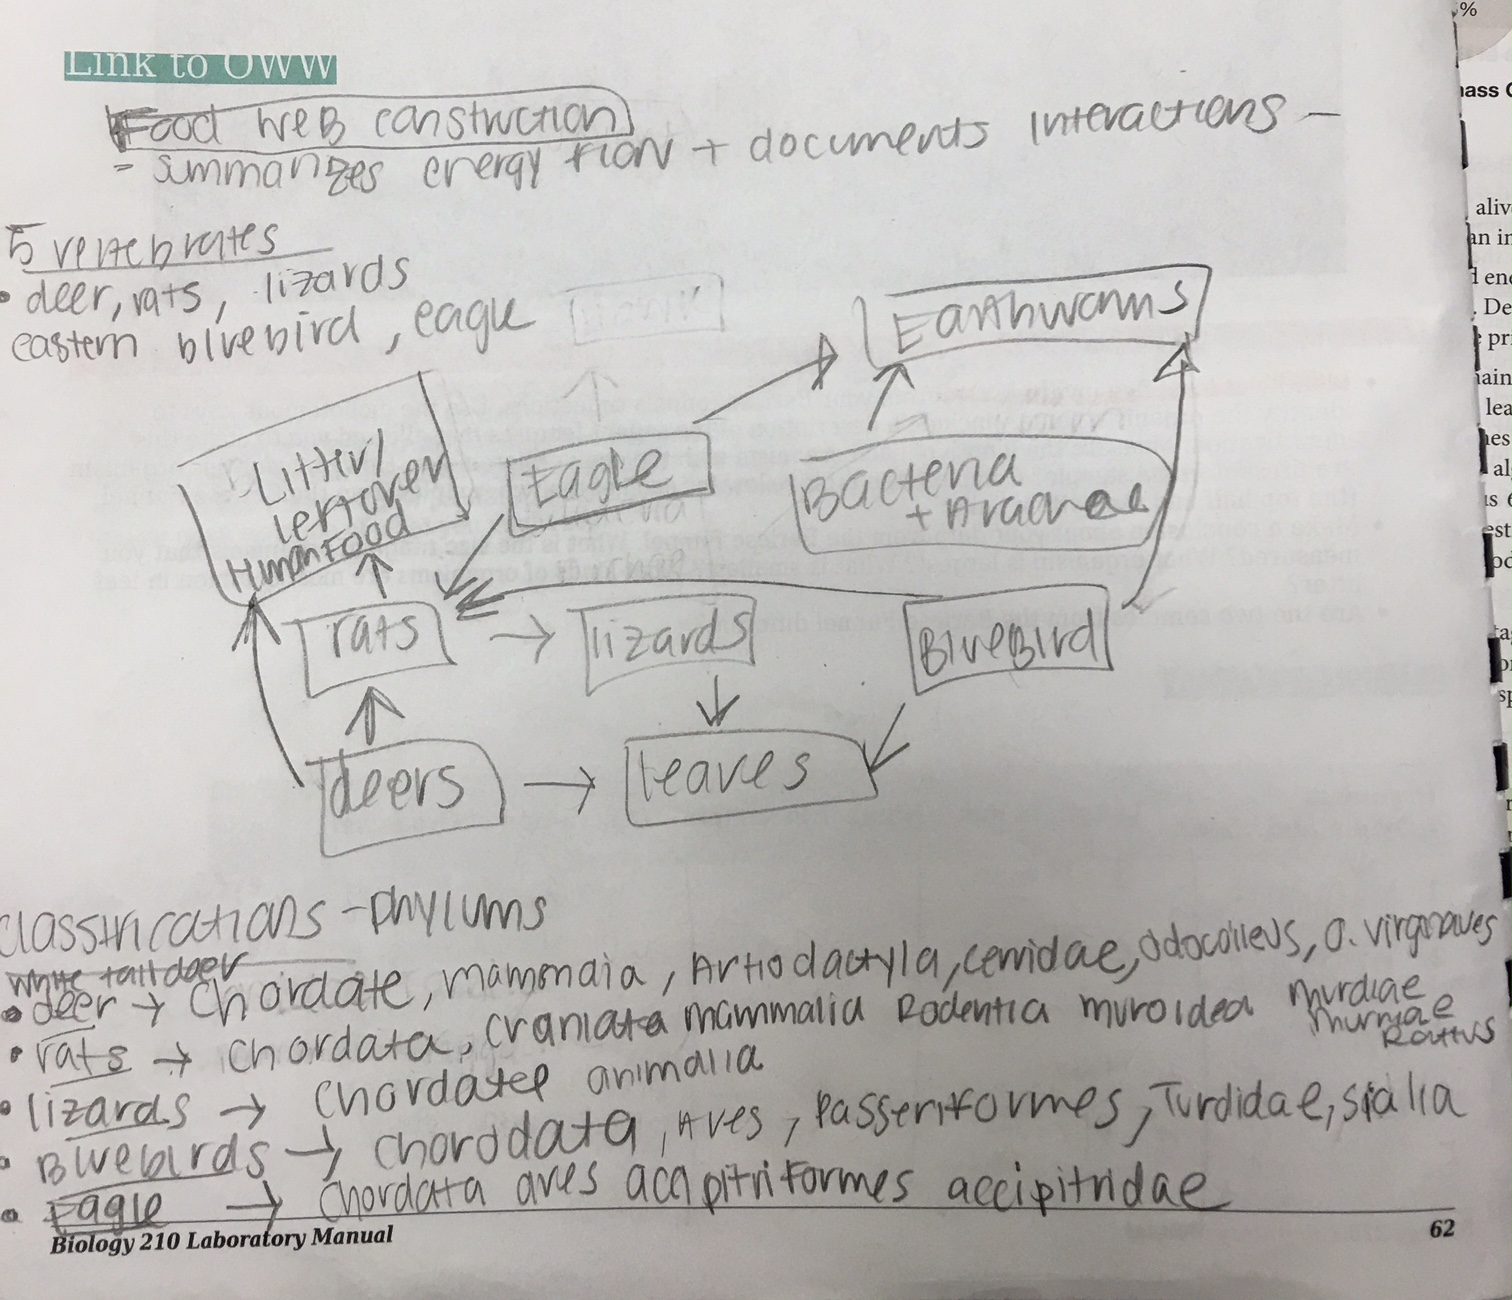 Link to OWW
Food Web construction
- summarizes energy flow + documents interactions -
5 vertebrates
• deer, rats, lizards
eastern bluebird, eagle
Earthworms
Litter/
leftover
Human Food
Eagle
Bacteria
+ Arachae
rats
lizards
BlueBird
deers
leaves
classifications - phylums
white tail deer
• deer → Chordate, mammalia, Artiodactyla, cervidae, O. virginaves
• rats → chordata, craniata mammalia Rodentia muroidea murdiae
murniae
Rattus
• lizards → Chordates animalia
• Bluebirds → chorodata, Aves, Passeriformes, Turdidae, sialia
• Eagle → Chordata aves accipitriformes accipitridae
Biology 210 Laboratory Manual
62
%
mass
aliv
an in
d en
. De
pr
main
lea
al
est